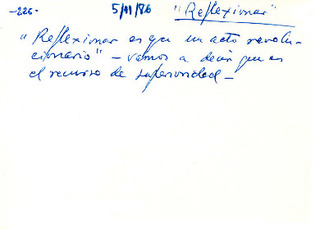 -226- 5/11/86 "Reflexionar"
"Reflexionar es ya un acto revolu-
cionario" - vamos a decir que es
el recurso de superioridad -